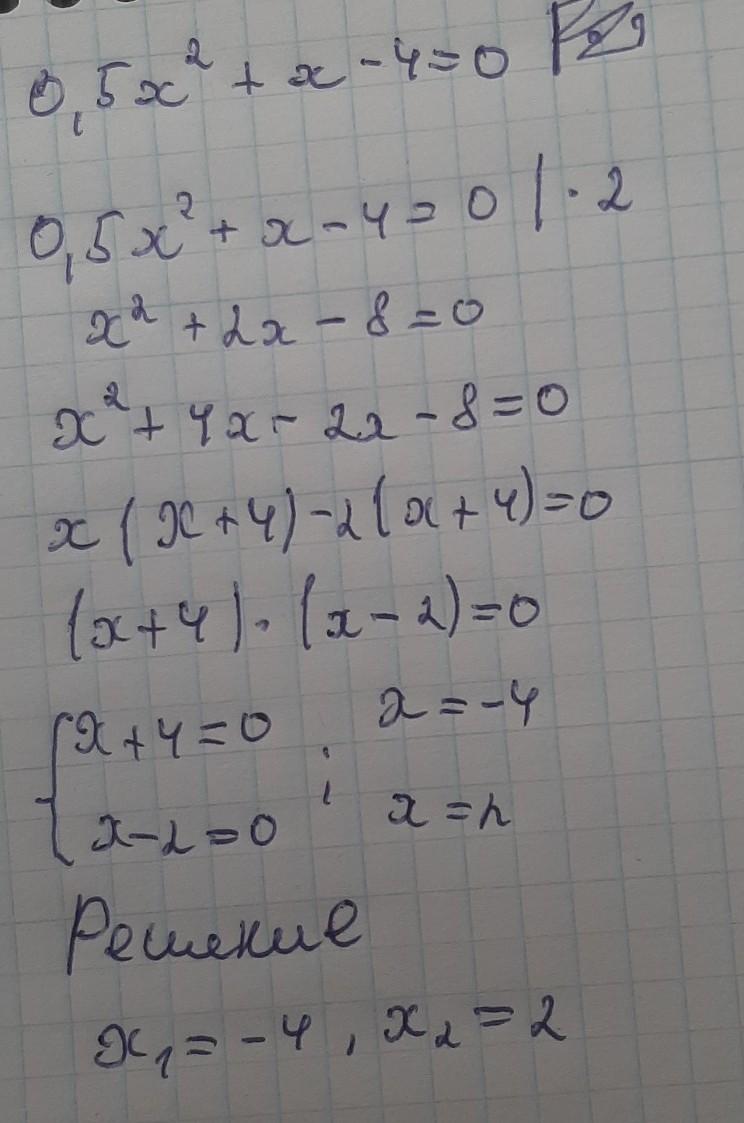 0,5x² + x - 4 = 0
0,5x² + x - 4 = 0 | · 2
x² + 2x - 8 = 0
x² + 4x - 2x - 8 = 0
x(x + 4) - 2(x + 4) = 0
(x + 4) · (x - 2) = 0
{ x + 4 = 0 ; x = -4
x - 2 = 0 x = 2
Решение
x₁ = -4, x₂ = 2